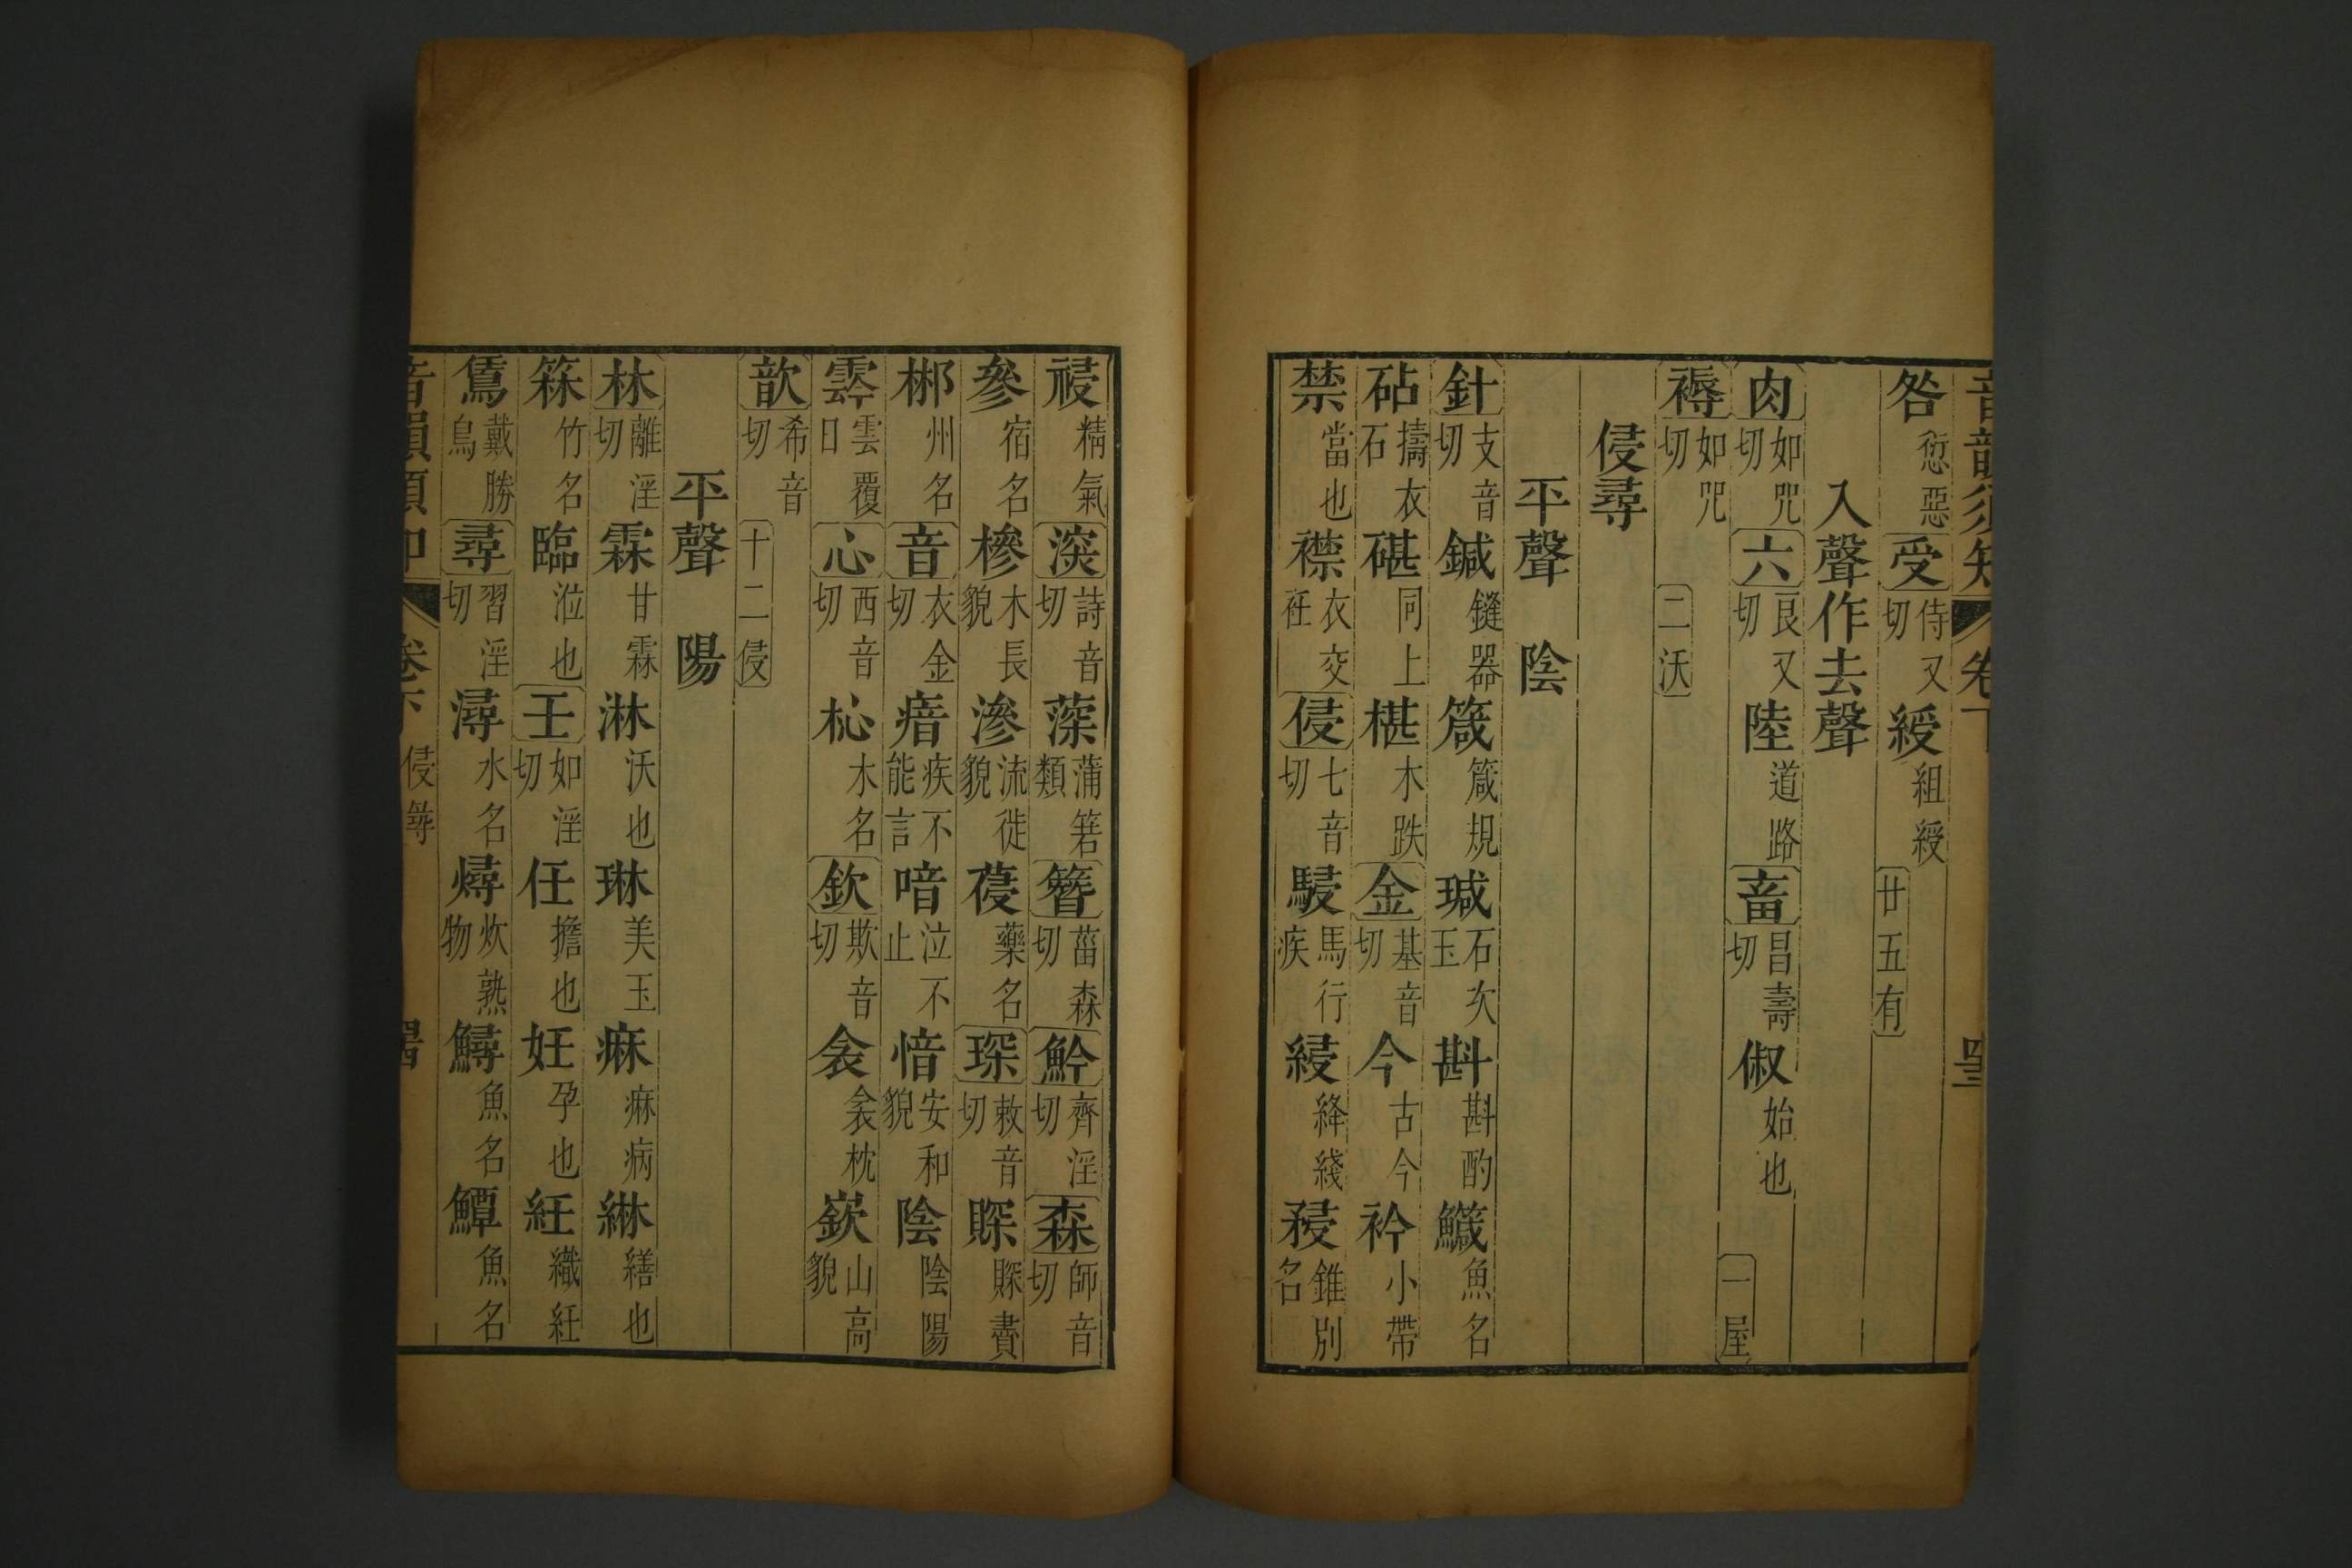 音韻須知 卷下
咎愆惡受侍又切綬組綬廿五有
入聲作去聲
肉如咒切六良又切陸道路畜昌壽切俶始也一屋
褥如咒切二沃
侵尋
平聲 陰
針支音切鍼鏠器箴箴規瑊石次玉斟斟酌鱵魚名
砧擣衣石碪同上椹木跌金基音切今古今衿小帶
禁當也襟衣交衽侵七音切駸馬行疾綅絳綫祲錐別名
祲精氣深詩音切蔆蒲箬類簪菑森切魿齊淫切森師音切
參宿名槮木長貌滲流徙貌葠藥名琛敕音切賝賝賮
郴州名音衣金切瘖疾不能言喑泣不止愔安和貌陰陰陽
霒雲覆日心西音切杺木名欽欺音切衾衾枕嶔山高貌
歆希音切十二侵
平聲 陽
林離淫切霖甘霖淋沃也琳美玉痳痳病綝繕也
箖竹名臨涖也壬如淫切任擔也妊孕也紝織紝
鵀戴勝鳥尋習淫切潯水名燖炊熟物鱘魚名鱏魚名
音韻須知 卷下 侵尋